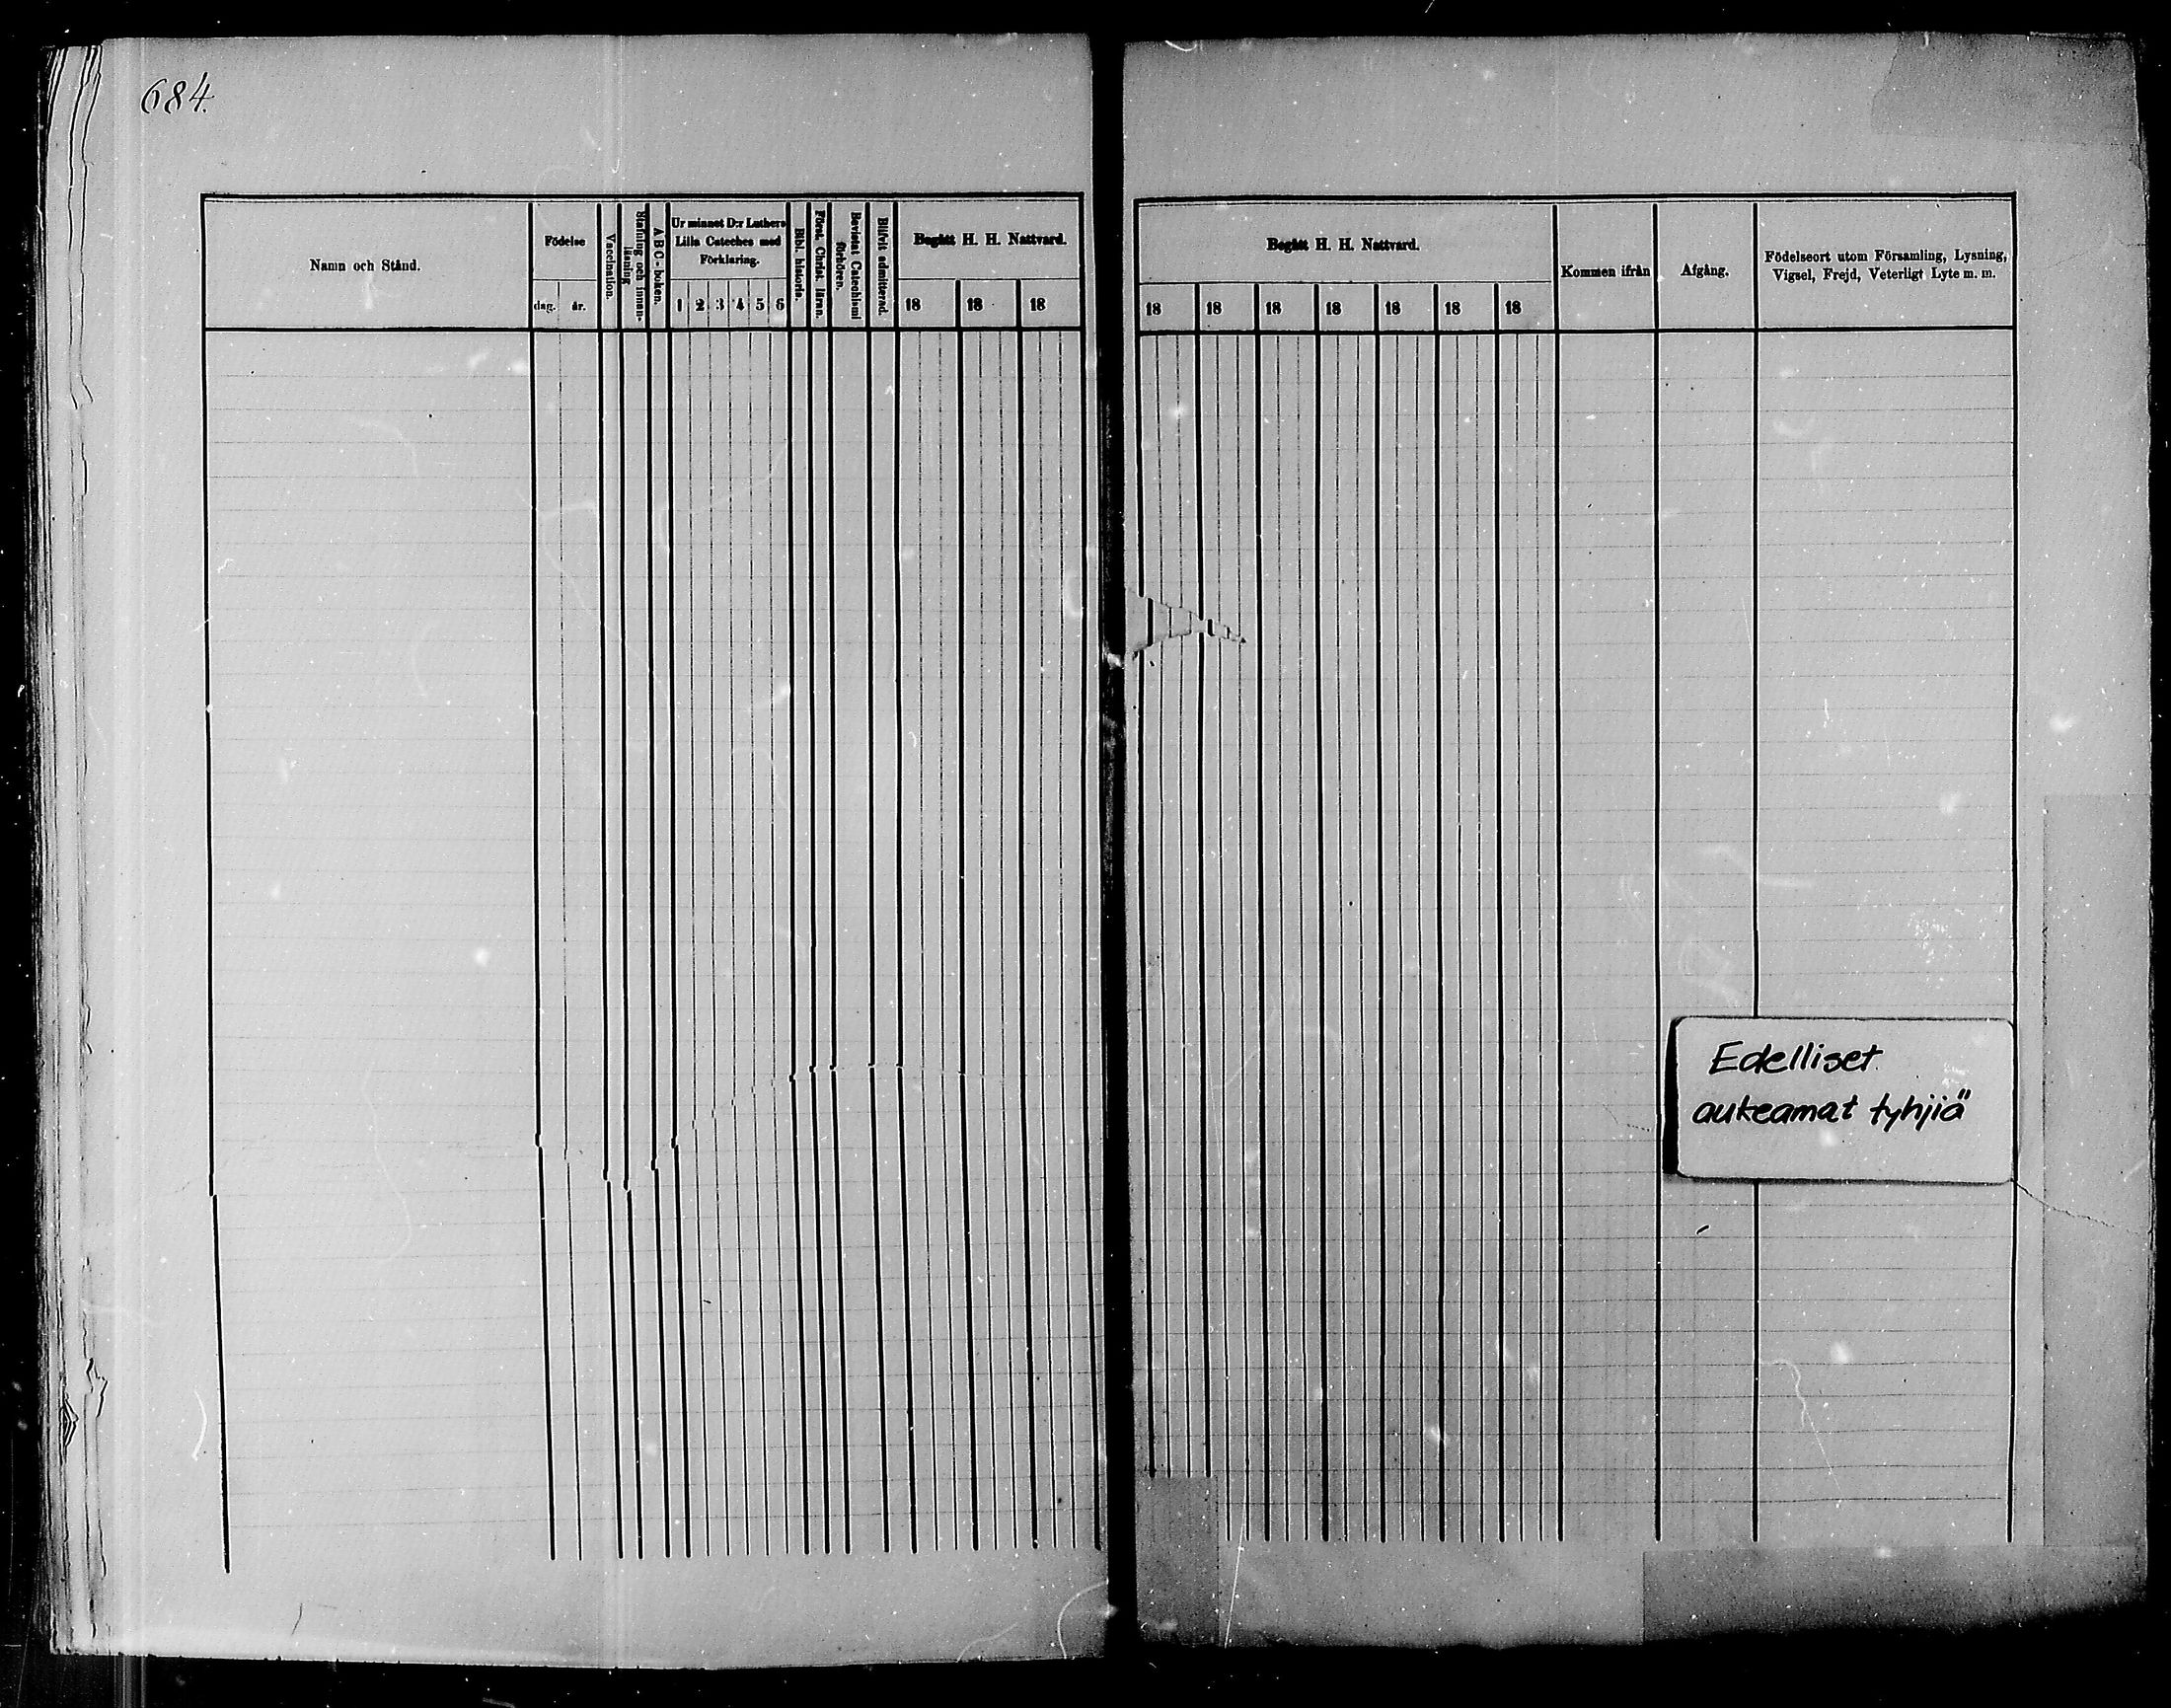 684.
Namn och Stånd.
Födelse
dag. år.
Vaccination.
Stafning och innan-
läsning
A B C-boken.
Ur minnet D:r Luthers
Lilla Cateches med
Förklaring.
1 2 3 4 5 6
Bibl. historia.
Först. Christ. läran.
Bevistat Catechismi
förhören.
Blifvit admitterad.
Begått H. H. Nattvard.
18 18 18
Begått H. H. Nattvard.
18 18 18 18 18 18 18
Kommen ifrån
Afgång.
Födelseort utom Församling, Lysning,
Vigsel, Frejd, Veterligt Lyte m. m.
Edelliset
aukeamat tyhjiä